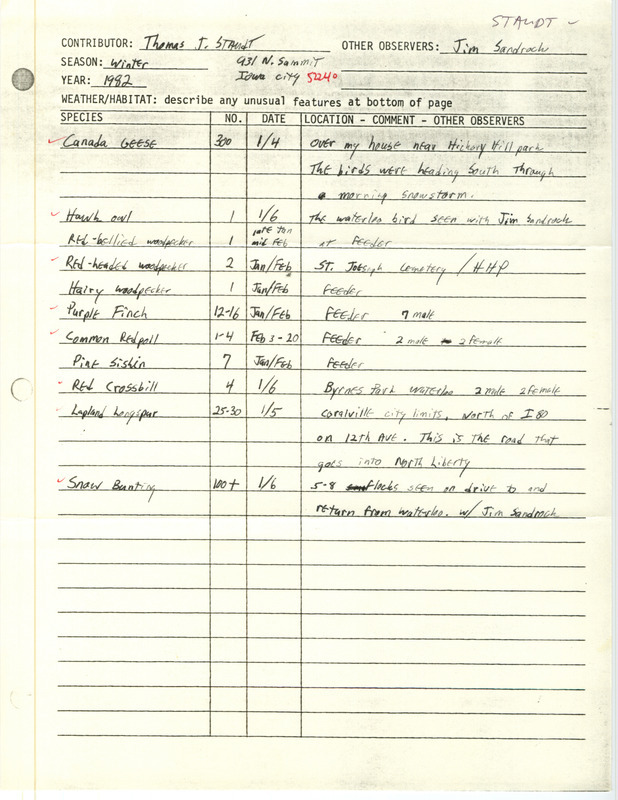 STAUDT -
CONTRIBUTOR: Thomas J. STAUDT OTHER OBSERVERS: Jim Sandrock
SEASON: Winter 931 N. Summit
YEAR: 1982 Iowa City 52240
WEATHER/HABITAT: describe any unusual features at bottom of page
SPECIES NO. DATE LOCATION - COMMENT - OTHER OBSERVERS
Canada GEESE 300 1/4 over my house near Hickory Hill park
The birds were heading South Through
a morning snowstorm.
Hawk owl 1 1/6 The waterloo bird seen with Jim Sandrock
Red-bellied woodpecker 1 late Jan mid Feb at FEEDER
Red-headed woodpecker 2 Jan/Feb ST. Joseph Cemetery / HHP
Hairy woodpecker 1 Jan/Feb FEEDER
Purple Finch 12-16 Jan/Feb FEEDER 7 male
Common Redpoll 1-4 Feb 3-20 FEEDER 2 male 2 female
Pine Siskin 7 Jan/Feb feeder
Red Crossbill 4 1/6 Byrnes Park Waterloo 2 male 2 female
Lapland Longspur 25-30 1/5 Coralville city limits, North of I 80
on 12th AVE. This is the road that
goes into North Liberty
Snow Bunting 100+ 1/6 5-8 flocks seen on drive to and
return from waterloo. w/ Jim Sandrock